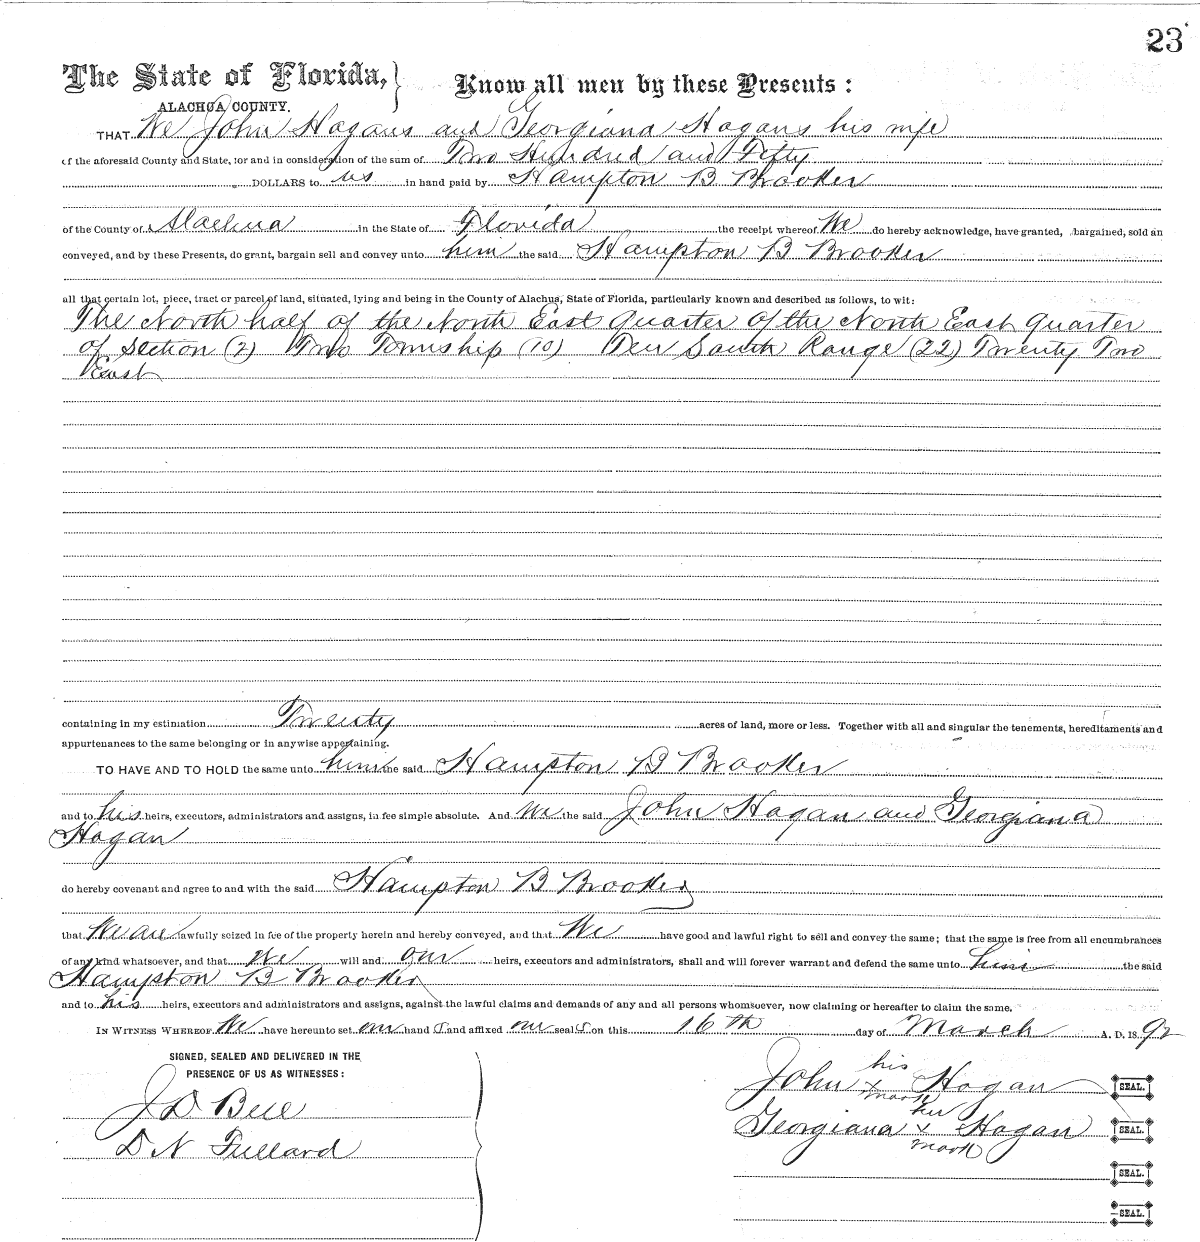 23
The State of Florida, Know all men by these Presents :
ALACHUA COUNTY.
THAT We John Hogans and Georgiana Hogans his wife
of the aforesaid County and State, for and in consideration of the sum of Two Hundred and Fifty
DOLLARS to us in hand paid by Hampton B Brooker
of the County of Alachua in the State of Florida the receipt whereof We do hereby acknowledge, have granted, bargained, sold an
conveyed, and by these Presents, do grant, bargain sell and convey unto him the said Hampton B Brooker
all that certain lot, piece, tract or parcel of land, situated, lying and being in the County of Alachua, State of Florida, particularly known and described as follows, to wit:
The North half of the North East quarter of the North East quarter
of Section (2) Two Township (10) Ten South Range (22) Twenty Two
East
containing in my estimation Twenty acres of land, more or less. Together with all and singular the tenements, hereditaments and
appurtenances to the same belonging or in anywise appertaining.
TO HAVE AND TO HOLD the same unto him the said Hampton B Brooker
and to his heirs, executors, administrators and assigns, in fee simple absolute. And We the said John Hogan and Georgiana
Hogan
do hereby covenant and agree to and with the said Hampton B Brooker
that We are lawfully seized in fee of the property herein and hereby conveyed, and that We have good and lawful right to sell and convey the same; that the same is free from all encumbrances
of any kind whatsoever, and that We will and our heirs, executors and administrators, shall and will forever warrant and defend the same unto him the said
Hampton B Brooker
and to his heirs, executors and administrators and assigns, against the lawful claims and demands of any and all persons whomsoever, now claiming or hereafter to claim the same.
IN WITNESS WHEREOF We have hereunto set our hand s and affixed our seal s on this 16th day of March A. D. 18 92
SIGNED, SEALED AND DELIVERED IN THE
PRESENCE OF US AS WITNESSES :
his
John x Hogan SEAL.
mark
J D
her
Georgiana x Hogan SEAL.
mark
D N Fullard
SEAL.
SEAL.